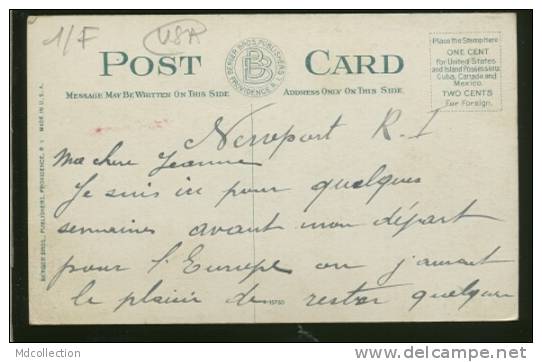 1/F
USA
POST CARD
BERGER BROS. PUBLISHERS
PROVIDENCE, R.I.
BB
MESSAGE MAY BE WRITTEN ON THIS SIDE
ADDRESS ONLY ON THIS SIDE
Place the Stamp Here
ONE CENT
for United States
and Island Possessions
Cuba, Canada and
Mexico.
TWO CENTS
For Foreign.
BERGER BROS., PUBLISHERS, PROVIDENCE, R. I. MADE IN U.S.A.
Newport R. I
Ma chere Jeanne
Je suis ici pour quelques
semaines avant mon départ
pour l'Europe ou j'aurait
le plaisir de rester quelques
MDcollection
http://www.delcampe.net